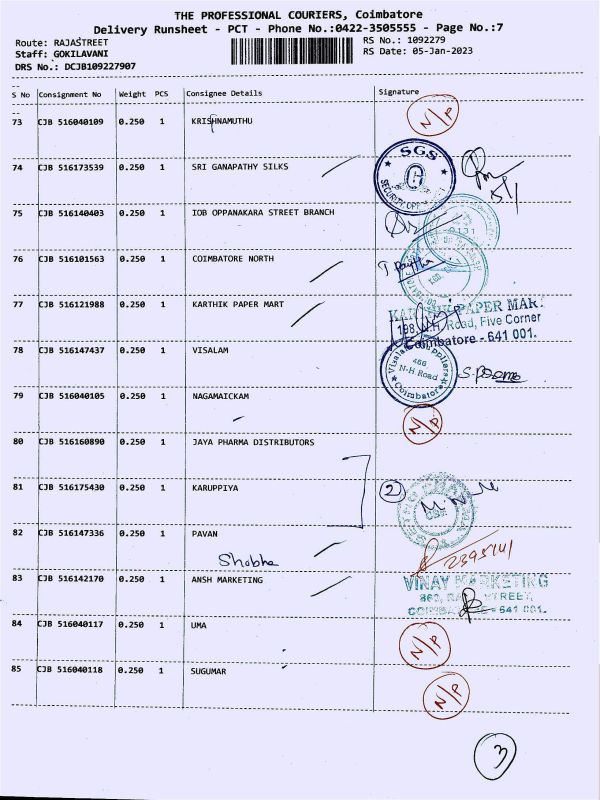 THE PROFESSIONAL COURIERS, Coimbatore
Delivery Runsheet - PCT - Phone No.:0422-3505555 - Page No.:7
Route: RAJASTREET
RS No.: 1092279
Staff: GOKILAVANI
RS Date: 05-Jan-2023
DRS No.: DCJB109227907
S No Consignment No Weight PCS Consignee Details Signature
73 CJB 516040109 0.250 1 KRISHNAMUTHU N/P
74 CJB 516173539 0.250 1 SRI GANAPATHY SILKS
SGS
75 CJB 516140403 0.250 1 IOB OPPANAKARA STREET BRANCH
76 CJB 516101563 0.250 1 COIMBATORE NORTH
77 CJB 516121988 0.250 1 KARTHIK PAPER MART
PAPER MAR
198, N.H. Road, Five Corner
Coimbatore - 641 001.
78 CJB 516147437 0.250 1 VISALAM
466
N-H Road
Coimbatore
79 CJB 516040105 0.250 1 NAGAMAICKAM N/P
80 CJB 516160890 0.250 1 JAYA PHARMA DISTRIBUTORS
81 CJB 516175430 0.250 1 KARUPPIYA 2
82 CJB 516147336 0.250 1 PAVAN
Shobha
83 CJB 516142170 0.250 1 ANSH MARKETING
VINAY MARKETING
STREET,
COIMBATORE - 641 001.
84 CJB 516040117 0.250 1 UMA N/P
85 CJB 516040118 0.250 1 SUGUMAR N/P
3